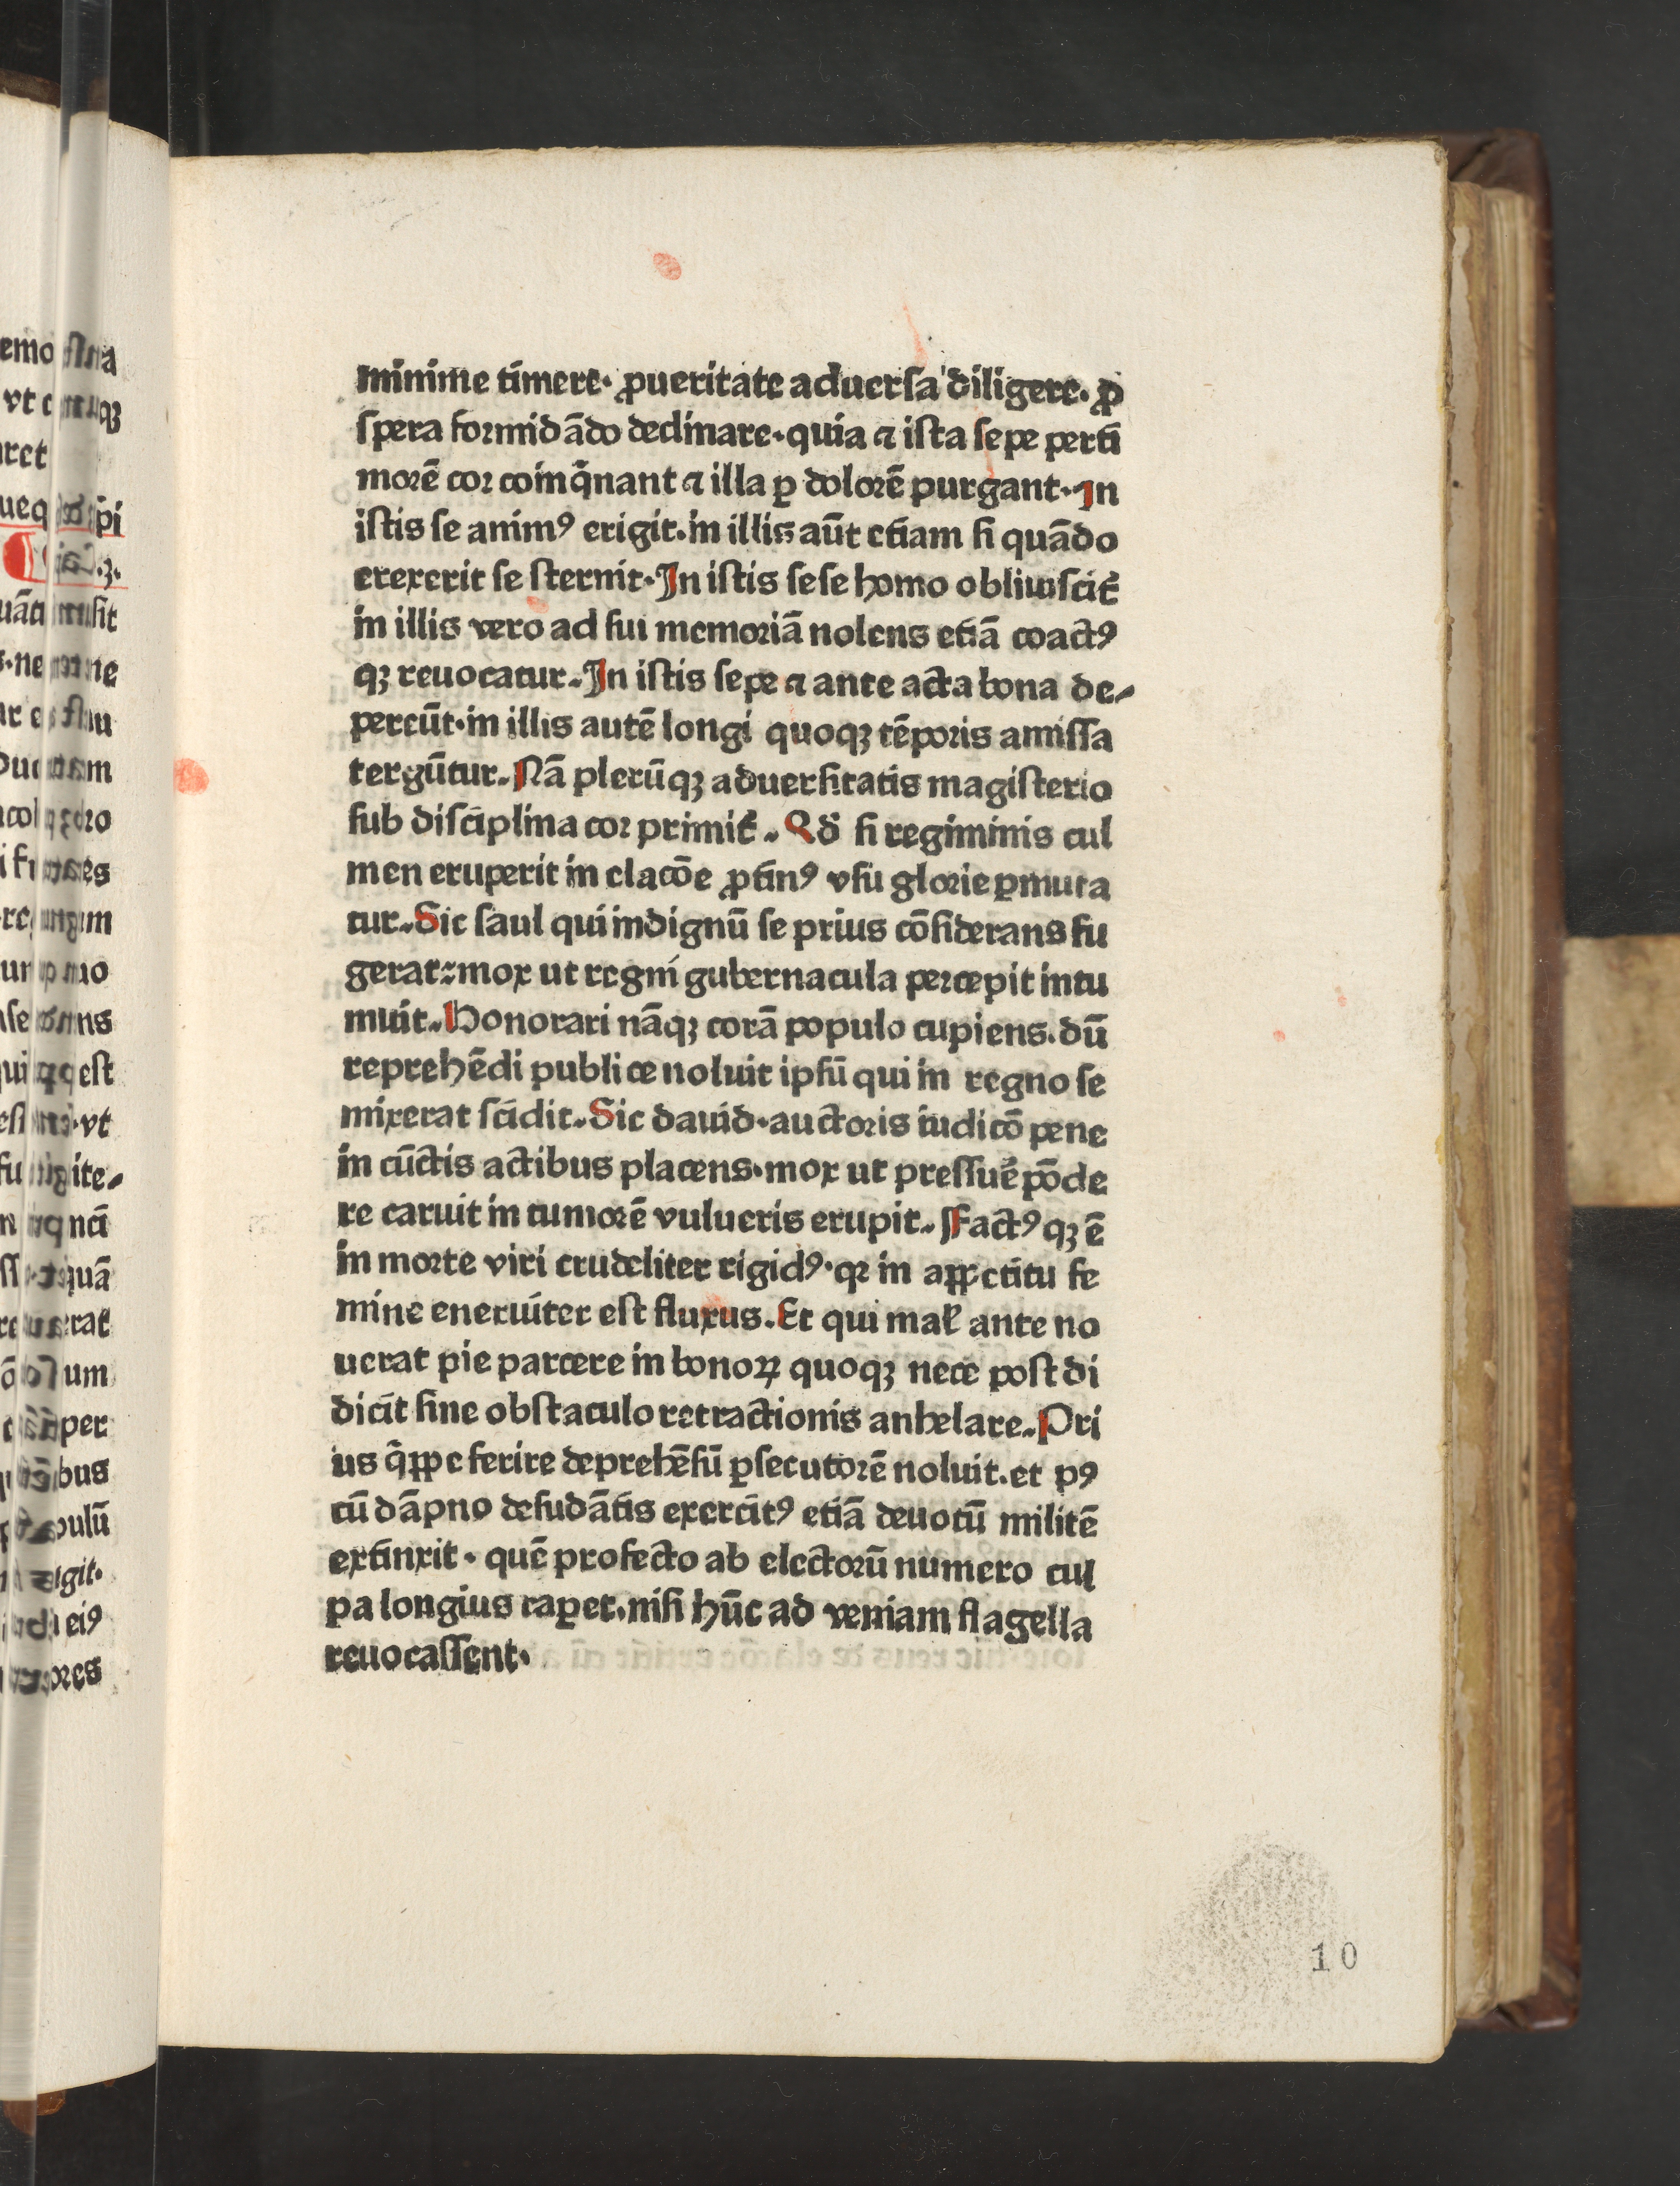 minime timere· ꝓueritate aduersa diligere· ꝓ
spera formidādo declinare·quia ⁊ ista sepe perti
morē cor coinq̄nant ⁊ illa ꝑ dolorē purgant·In
istis se animꝰ erigit·in illis aūt etiam si quādo
erexerit se sternit·In istis sese homo obliuiscit᷑
in illis vero ad sui memoriā nolens etiā coactꝰ
qꝫ reuocatur·In istis sepe ⁊ ante acta bona de-
pereūt·in illis autē longi quoqꝫ tēporis amissa
tergūtur·Nā plerūqꝫ aduersitatis magisterio
sub disciplina cor primit᷑·Qđ si regiminis cul
men eruperit in elacōe ꝓtinꝰ vsu glorie ꝑmuta
tur·Sic saul qui indignū se prius cōsiderans fu
gerat:mox ut regni gubernacula percepit intu
muit·Honorari nāqꝫ corā populo cupiens·dū
reprehēdi publice noluit ipsū qui in regno se
mixerat scidit·Sic dauid·auctoris iudicō pene
in cūctis actibus placens·mox ut pressure᷑ pōde
re caruit in tumorē vulueris erupit·Factꝰqꝫ ē
in morte viri crudeliter rigidꝰ·qꝛ in appetitu fe
mine eneruiter est fluxus·Et qui maƚ ante no
uerat pie parcere in bonoꝝ quoqꝫ nece post di
dicit sine obstaculo retractionis anhelare·Pri
us q̄ppe ferire deprehēsū ꝑsecutorē noluit·et pꝰ
cū dāpno desudātis exercitꝰ etiā deuotū militē
extinxit· quē profecto ab electorū numero cul
pa longius raꝑet·nisi hūc ad veniam flagella
reuocassent·
10